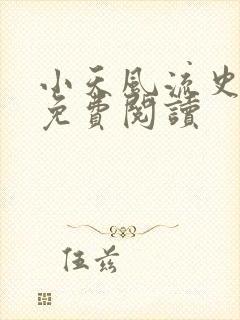 小天風流史
免費閱讀
伍茲